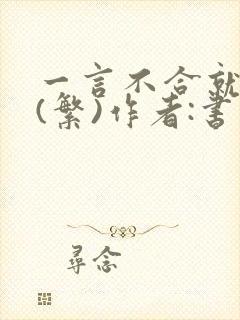 一言不合就
(繁)作者:書
尋念